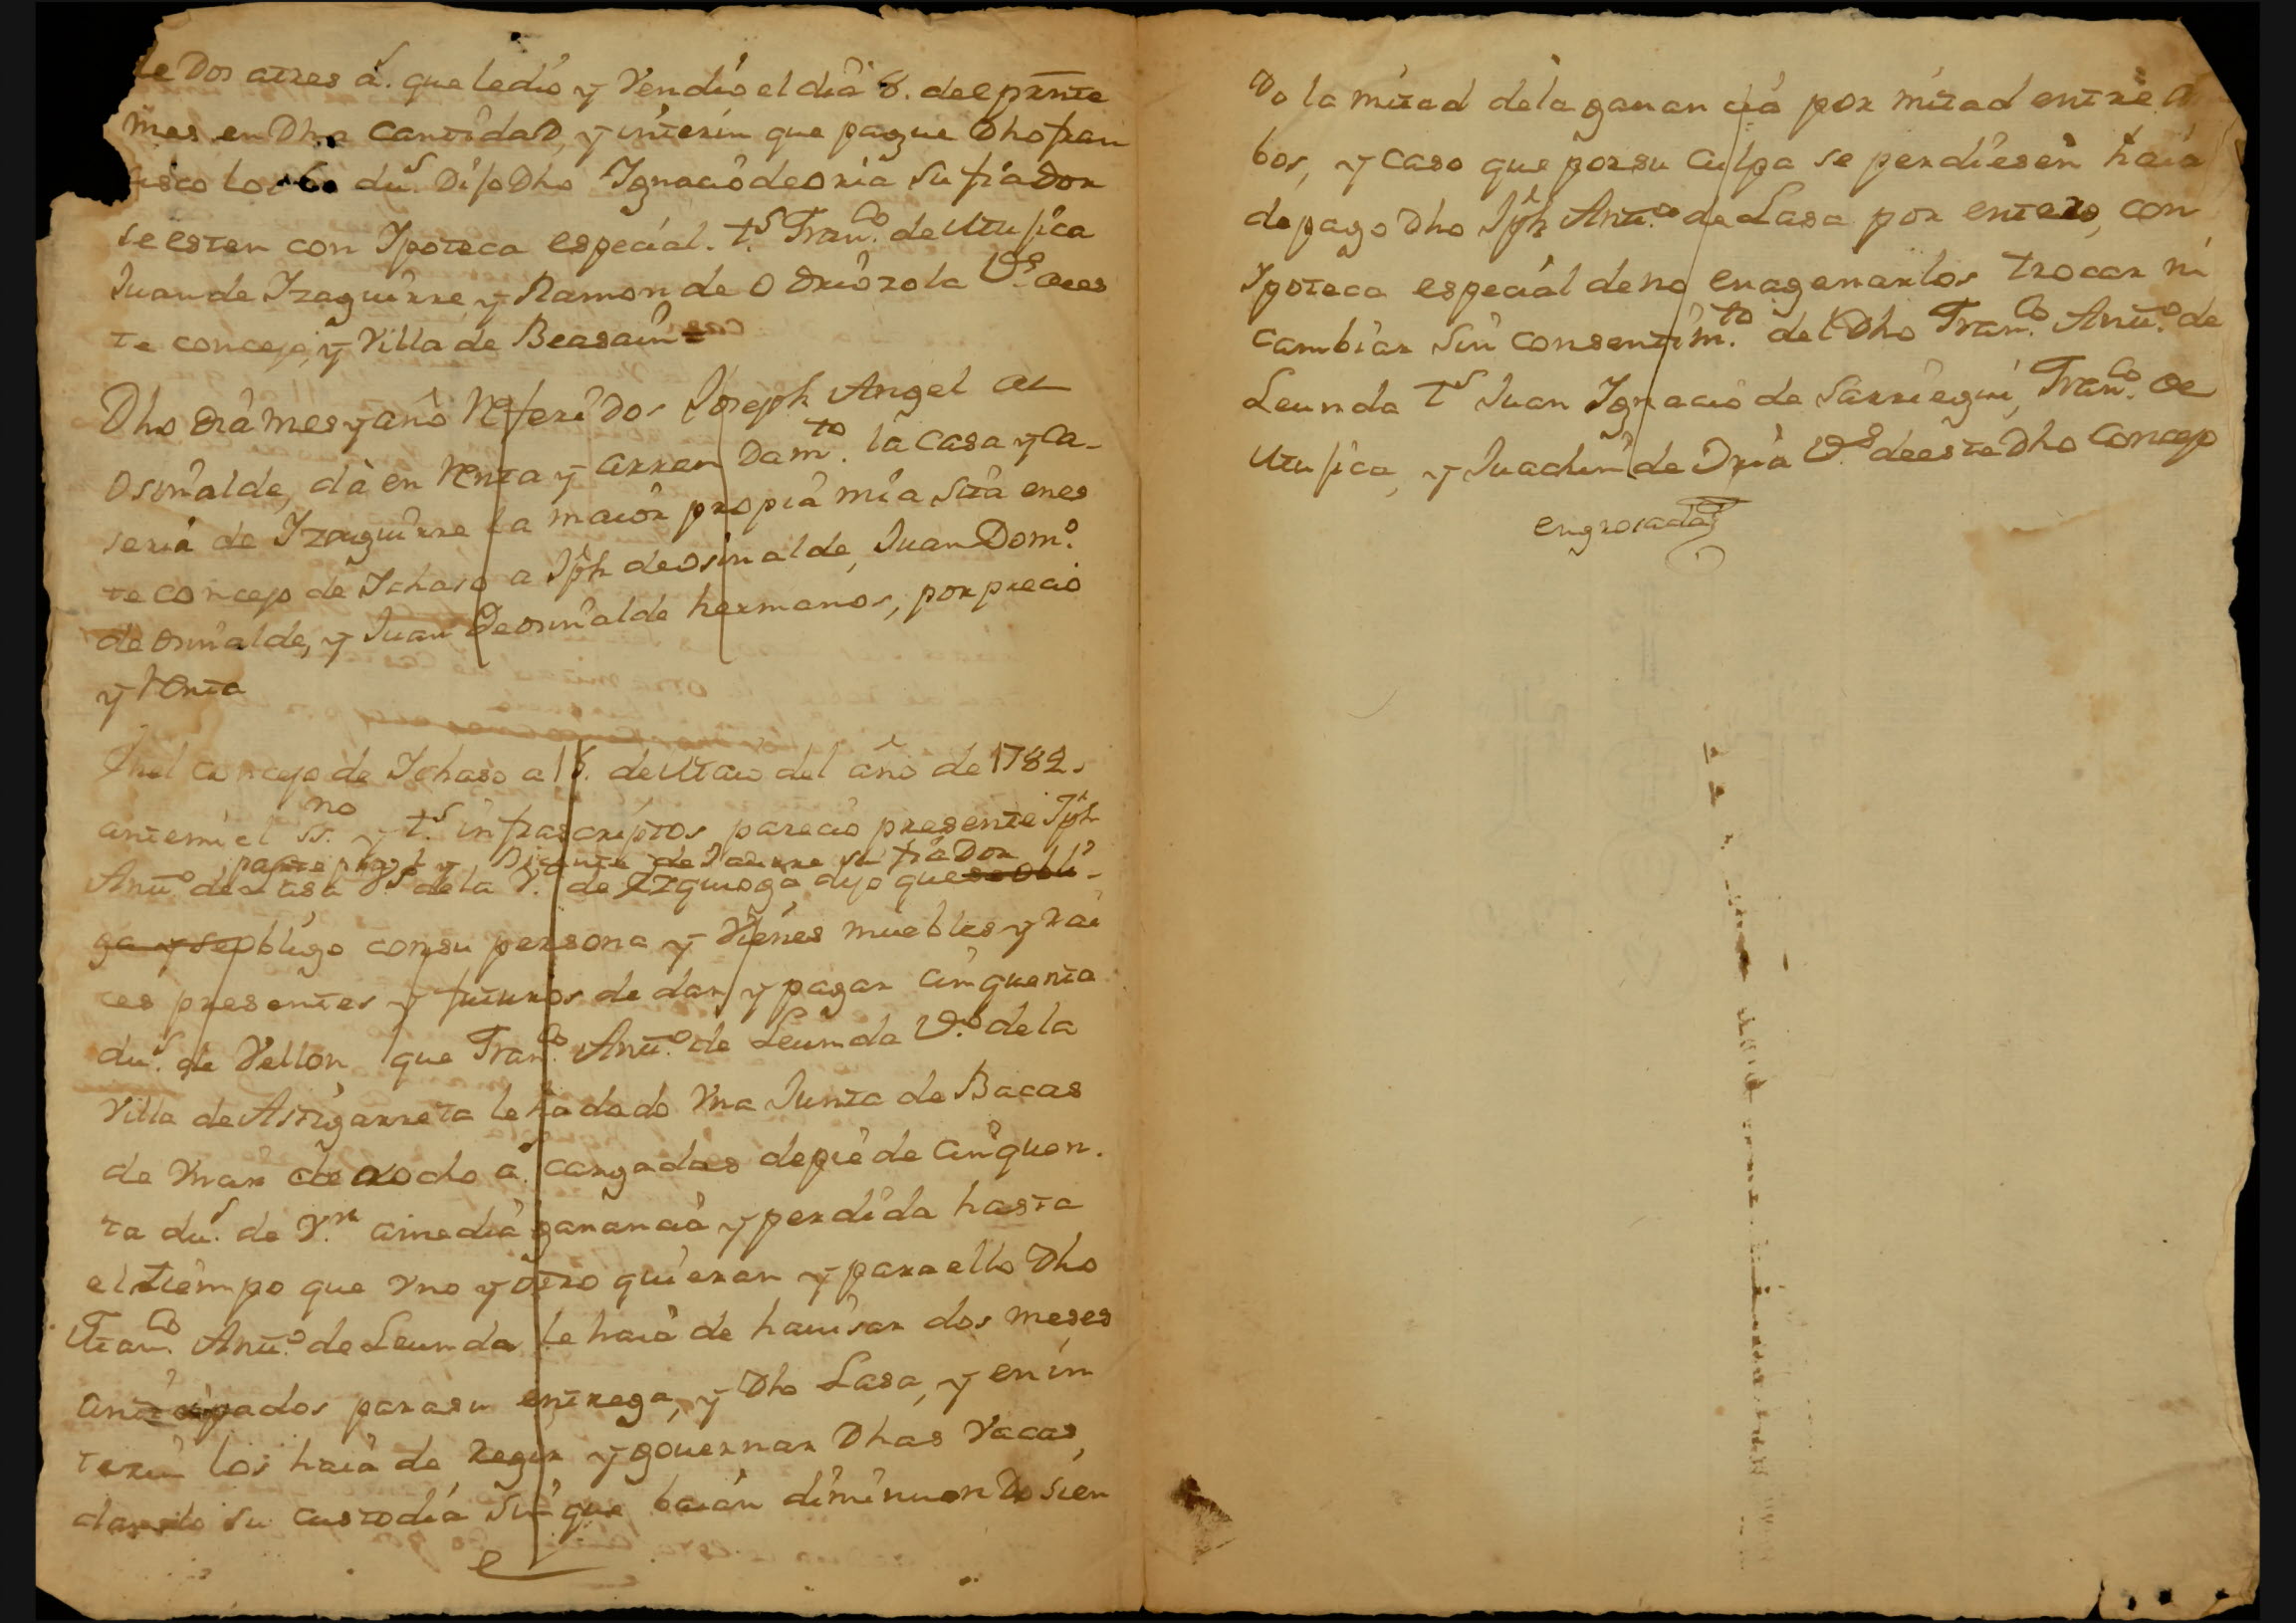 de Dos atres a.s que ledio y Vendio el dia 8. deeprnte
mes en Dha Cantidad, y interin que pague Dho fran
sisco los 60 du.s Dijo Dho Ignacio de oria su fiador
se esten con Ipoteca especial. t.s Fran.co de Utusica
Juan de Izaguirre, y Ramon de Odriozola V.s de es
te concejo, y Villa de Beasain
Dho dia mes y año Referidos Joseph Angel de
Osinalde, dà en Renta y arrendam.to la Casa y Ca-
seria de Izaguirre la maior propia mia sita en es
te concejo de Ichaso a Jph de osinalde, Juan Dom.o
de osinalde, y Juan de osinalde hermanos, por precio
y Renta
En el concejo de Ichaso a 15. de Maio del año de 1782.
ante mi el ss.no y t.s infrascriptos parecio presente Jph
parte pral y fiador
Ant.o de Lasa V.o de la V. de Ezquioga dijo que se obli-
ga y se obligo con su persona y Vienes muebles y rai
ces presentes y futuros de dar y pagar cinquenta
du.s de Vellon que Fran.co Ant.o de Leunda V.o de la
Villa de Astigarreta le ha dado Vna Junta de Bacas
de Vnar de ocho a.s cargadas de pie de cinquen.
ta du.s de V.n a media ganancia y perdida hasta
el tiempo que Vno y otro quieran y para ello Dho
Fran.co Ant.o de Leunda le haia de hauisar dos meses
anticipados para su entrega, y Dho Lasa, y en in
terin los haia de regir y gouernar Dhas Vacas,
dando su custodia sin que baian diminuendo sien
Do la mitad de la ganancia por mitad entre a
bos, y caso que por su culpa se perdiesen haia
de pago Dho Jph Ant.o de Lasa por entero, con
Ipoteca especial de no enagenarlos trocar ni
cambiar sin consentim.to del Dho Fran.co Ant.o de
Leunda t.s Juan Ignacio de Sarriegui, Fran.co de
Utusica, y Juachin de Oria V.s de este Dho Concejo
engrosada